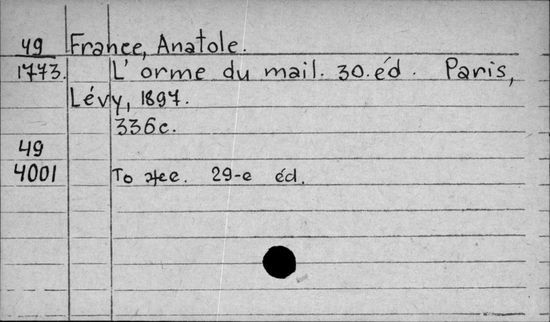 49 France, Anatole.
1773. L'orme du mail. 30.éd. Paris,
Lévy, 1897.
336с.
49
4001 То же. 29-е éd.